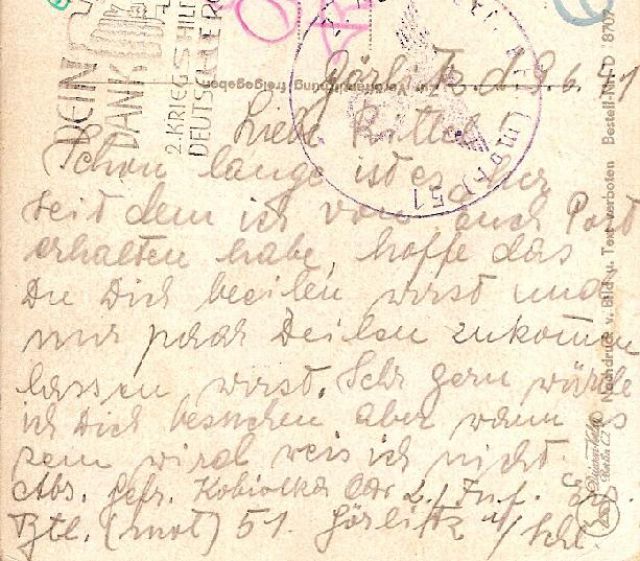 DEIN
DANK
2. KRIEGSHIL
DEUTSCHE RO
(mot) 51
Görlitz d. 9.6.41
Liebe
Schon lange ist es her
seit dem ich von euch Post
erhalten habe, hoffe das
Du Dich beeilen wirst und
mir paar Zeilen zukommen
lassen wirst. Sehr gern würde
ich Dich besuchen aber wann es
sein wird weis ich nicht.
Abs. Gefr. 2./Inf. Ers.
Btl. (mot) 51. Görlitz /Schl.
Zur Veröffentlichung freigegeben
Nachdruck v. Bild u. Text verboten Bestell-Nr. D 8707